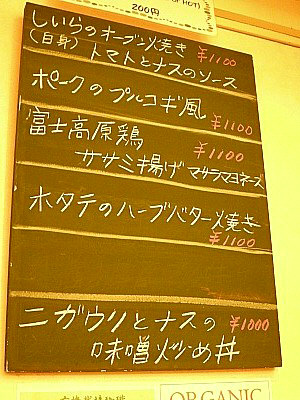 OF HOT)
200円
しいらのオーブン焼き
(白身) トマトとナスのソース
¥1100
ポークのプルコギ風
¥1100
富士高原鶏
ササミ揚げ マサラマヨネーズ
¥1100
ホタテのハーブバター焼き
¥1100
ニガウリとナスの ¥1000
味噌炒め丼
ORGANIC